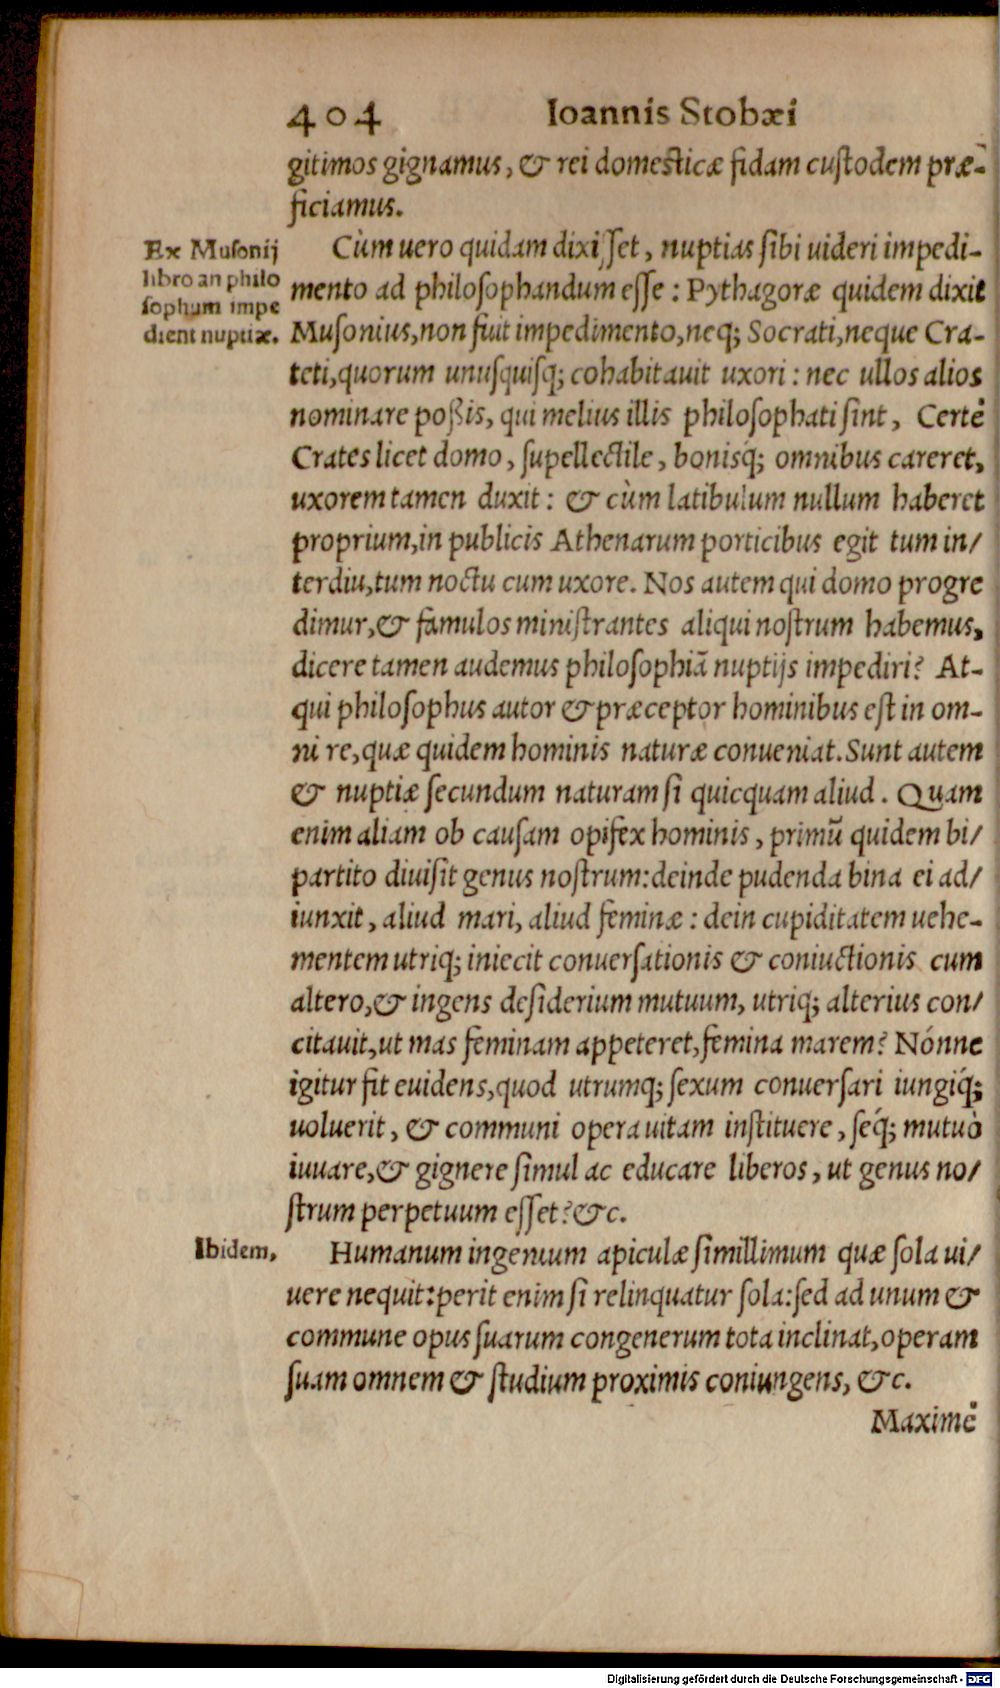 404 Ioannis Stobæi
gitimos gignamus, & rei domesticæ fidam custodem præ-
ficiamus.
Ex Musonij
libro an philo
sophum impe
dient nuptiæ.
Cùm uero quidam dixisset, nuptias sibi uideri impedi-
mento ad philosophandum esse : Pythagoræ quidem dixit
Musonius, non fuit impedimento, neq; Socrati, neque Cra-
teti, quorum unusquisq; cohabitauit uxori : nec ullos alios
nominare poßis, qui melius illis philosophati sint, Certè
Crates licet domo, supellectile, bonisq́; omnibus careret,
uxorem tamen duxit : & cùm latibulum nullum haberet
proprium, in publicis Athenarum porticibus egit tum in/
terdiu, tum noctu cum uxore. Nos autem qui domo progre
dimur, & famulos ministrantes aliqui nostrum habemus,
dicere tamen audemus philosophiā nuptijs impediri? At-
qui philosophus autor & præceptor hominibus est in om-
ni re, quæ quidem hominis naturæ conueniat. Sunt autem
& nuptiæ secundum naturam si quicquam aliud. Quam
enim aliam ob causam opifex hominis, primū quidem bi/
partito diuisit genus nostrum: deinde pudenda bina ei ad/
iunxit, aliud mari, aliud feminæ : dein cupiditatem uehe-
mentem utriq; iniecit conuersationis & coniuctionis cum
altero, & ingens desiderium mutuum, utriq; alterius con/
citauit, ut mas feminam appeteret, femina marem? Nónne
igitur fit euidens, quod utrumq; sexum conuersari iungiq́;
uoluerit, & communi opera uitam instituere, seq́; mutuò
iuuare, & gignere simul ac educare liberos, ut genus no/
strum perpetuum esset? &c.
Ibidem,
Humanum ingenium apiculæ simillimum quæ sola ui/
uere nequit: perit enim si relinquatur sola: sed ad unum &
commune opus suarum congenerum tota inclinat, operam
suam omnem & studium proximis coniungens, &c.
Maximè
Digitalisierung gefördert durch die Deutsche Forschungsgemeinschaft - DFG